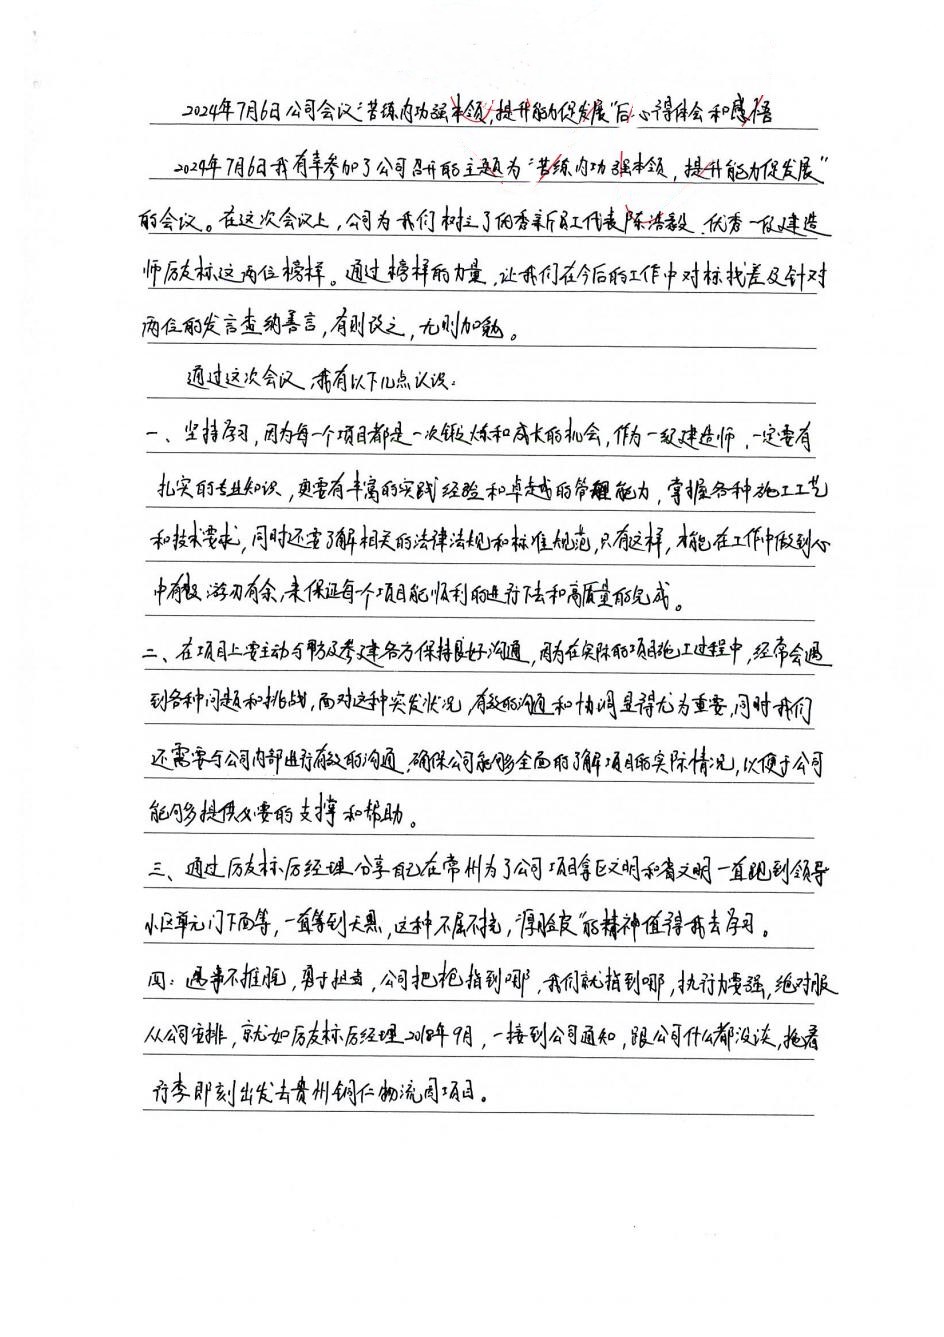 2024年7月6日公司会议“苦练内功强本领,提升能力促发展”后心得体会和感悟
2024年7月6日我有幸参加了公司召开的主题为“苦练内功强本领，提升能力促发展”
的会议。在这次会议上，公司为我们树立了优秀新员工代表陈浩毅、优秀一级建造
师厉友标这两位榜样。通过榜样的力量，让我们在今后的工作中对标找差及针对
两位的发言查纳善言，有则改之，无则加勉。
通过这次会议，我有以下几点认识：
一、坚持学习，因为每一个项目都是一次锻炼和成长的机会，作为一级建造师，一定要有
扎实的专业知识、更要有丰富的实践经验和卓越的管理能力，掌握各种施工工艺
和技术要求，同时还需了解相关的法律法规和标准规范，只有这样，才能在工作中做到心
中有数、游刃有余，来保证每个项目能顺利的进行下去和高质量的完成。
二、在项目上要主动与甲方及参建各方保持良好沟通，因为在实际的项目施工过程中，经常会遇
到各种问题和挑战，面对这种突发状况，有效的沟通和协调显得尤为重要，同时我们
还需要与公司内部进行有效的沟通，确保公司能够全面的了解项目的实际情况，以便于公司
能够多提供必要的支撑和帮助。
三、通过厉友标厉经理分享自己在常州为了公司项目拿区文明和省文明一直跑到领导
小区单元门下面等，一直等到天黑，这种不屈不挠，“厚脸皮”的精神值得我去学习。
四：遇事不推脱，勇于担当，公司把枪指到哪，我们就指到哪，执行力要强，绝对服
从公司安排，就如厉友标厉经理2018年9月，一接到公司通知，跟公司什么都没谈，拖着
行李即刻出发去贵州铜仁物流园项目。